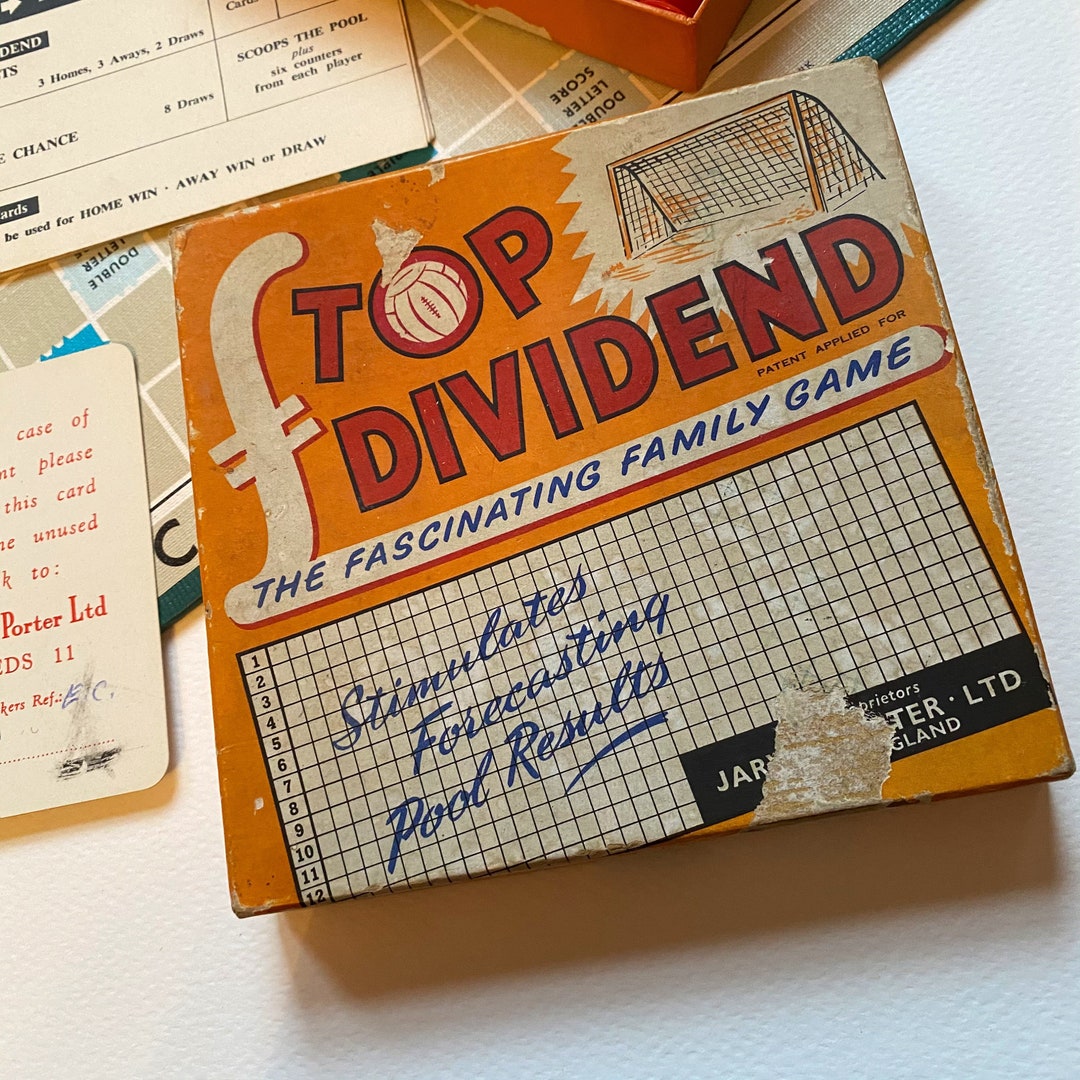 Cards
DEND
3 Homes, 3 Aways, 2 Draws
8 Draws
SCOOPS THE POOL
plus
six counters
from each player
E CHANCE
ards
be used for HOME WIN · AWAY WIN or DRAW
DOUBLE
LETTER
SCORE
DOUBLE
LETTER
case of
nt please
this card
he unused
k to:
Porter Ltd
EDS 11
kers Ref.: E.C.
£ TOP
DIVIDEND
PATENT APPLIED FOR
THE FASCINATING FAMILY GAME
Stimulates
Forecasting
Pool Results
1
2
3
4
5
6
7
8
9
10
11
12
prietors
JAR TER · LTD
GLAND